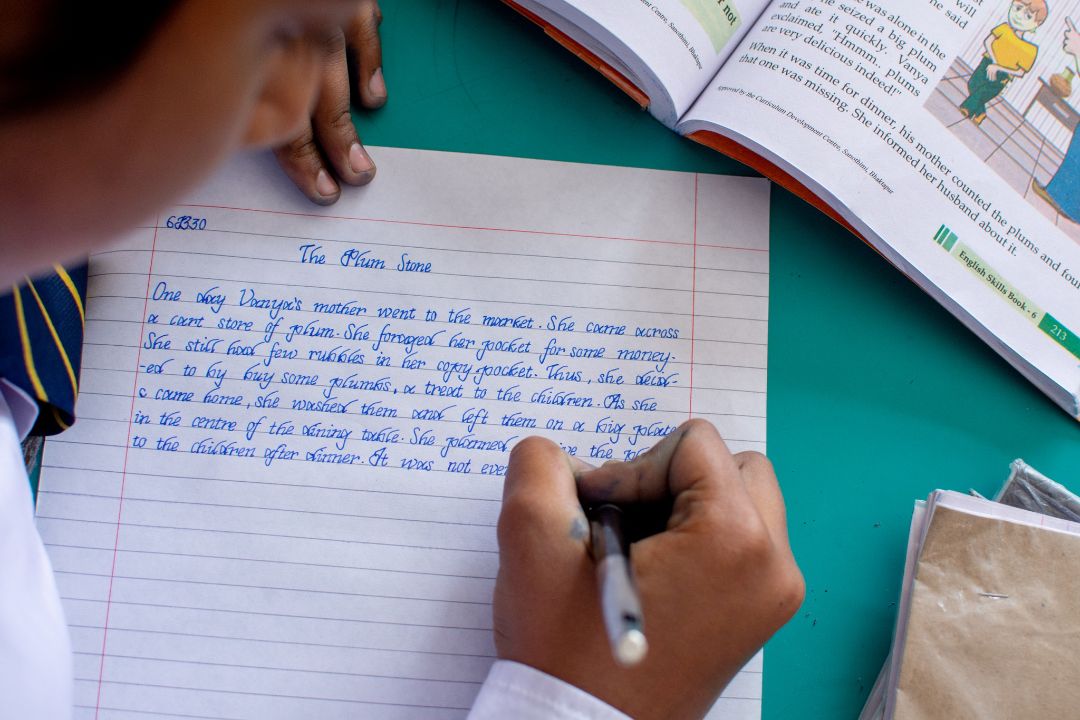 The Plum Stone
One day Vanya's mother went to the market. She came across
a cart store of plum. She foraged her pocket for some money.
She still had few rubbles in her pocket. Thus, she decid-
-ed to by buy some plumbs, a treat to the children. As she
c came home, she washed them and left them on a big plate
in the centre of the dining table. She planned the
to the children after dinner. It was not
not
Centre, Sanothimi, Bhaktapur
will
he said
was alone in the
he seized a big plum
and ate it quickly. Vanya
exclaimed, "Hmmm. plums
are very delicious indeed!"
When it was time for dinner, his mother counted the plums and foun
that one was missing. She informed her husband about it.
Approved by the Curriculum Development Centre, Sanothimi, Bhaktapur
English Skills Book - 6
213